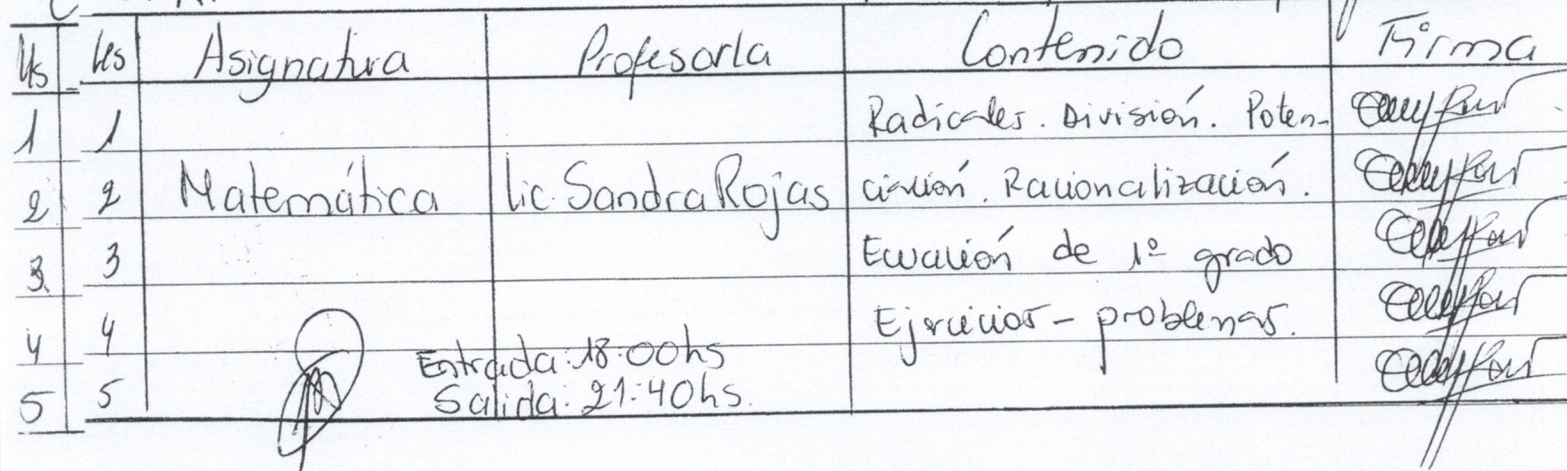 Hs Hs Asignatura Profesor/a Contenido Firma
1 1 Radicales. División. Poten-
2 2 Matemática Lic. Sandra Rojas ciación. Racionalización.
3 3 Ecuación de 1º grado
4 4 Ejercicios - problemas.
Entrada: 18:00hs
5 5 Salida: 21:40hs.